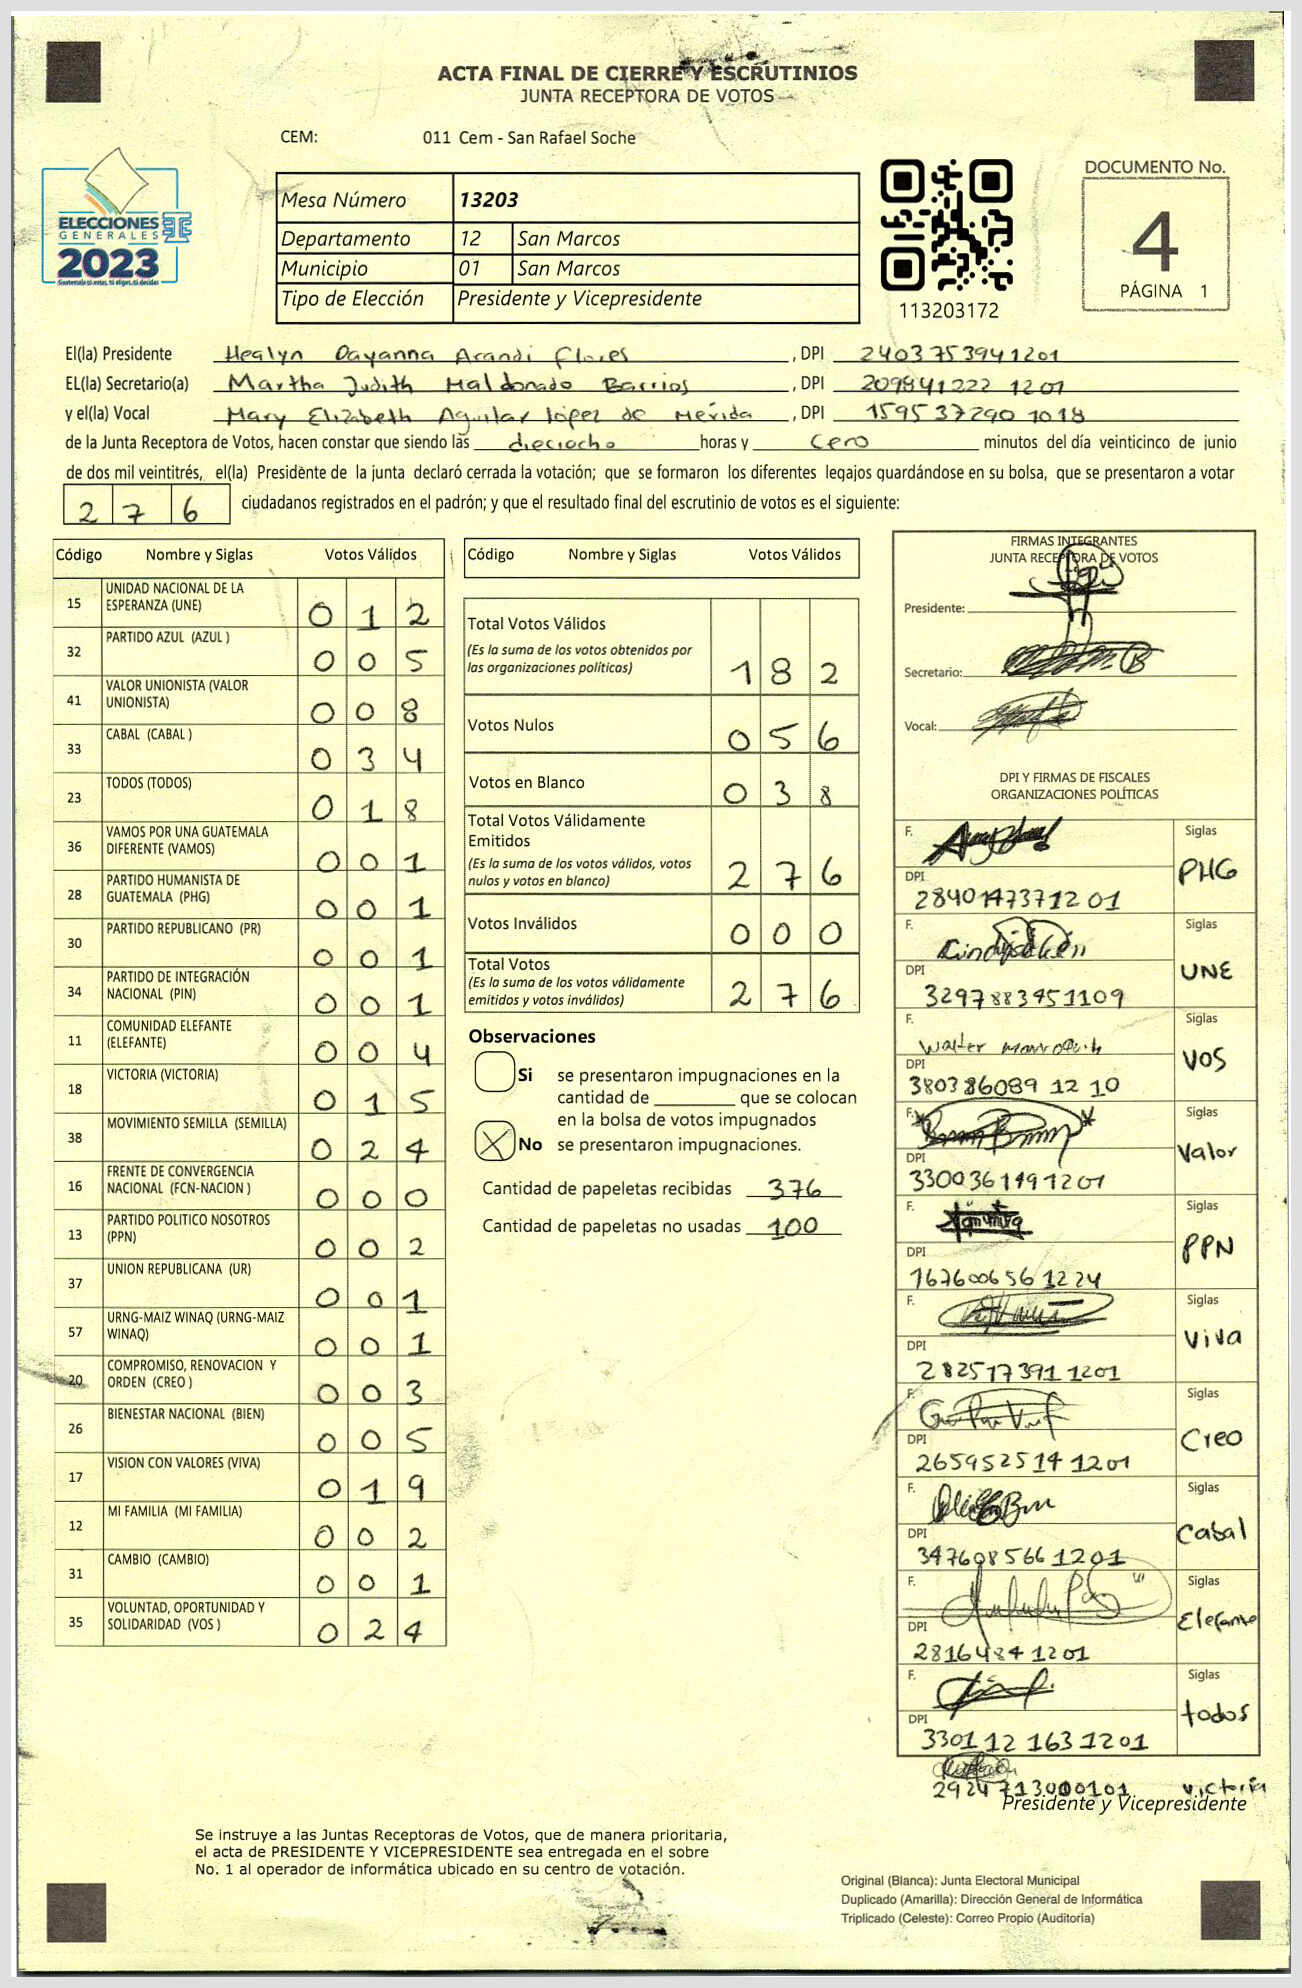 ACTA FINAL DE CIERRE Y ESCRUTINIOS
JUNTA RECEPTORA DE VOTOS
CEM: 011 Cem - San Rafael Soche
ELECCIONES
GENERALES
2023
Mesa Número 13203
Departamento 12 San Marcos
Municipio 01 San Marcos
Tipo de Elección Presidente y Vicepresidente
113203172
DOCUMENTO No.
4
PÁGINA 1
El(la) Presidente Healyn Dayanna Arandi Flores, DPI 2403753941201
EL(la) Secretario(a) Martha Judith Maldonado Barrios, DPI 209841222 1201
y el(la) Vocal Mary Elizabeth Aguilar López de Mérida, DPI 159537290 1018
de la Junta Receptora de Votos, hacen constar que siendo las dieciocho horas y cero minutos del día veinticinco de junio
de dos mil veintitrés, el(la) Presidente de la junta declaró cerrada la votación; que se formaron los diferentes legajos quardándose en su bolsa, que se presentaron a votar
2 7 6 ciudadanos registrados en el padrón; y que el resultado final del escrutinio de votos es el siguiente:
Código Nombre y Siglas Votos Válidos
15 UNIDAD NACIONAL DE LA ESPERANZA (UNE) 0 1 2
32 PARTIDO AZUL (AZUL ) 0 0 5
41 VALOR UNIONISTA (VALOR UNIONISTA) 0 0 8
33 CABAL (CABAL ) 0 3 4
23 TODOS (TODOS) 0 1 8
36 VAMOS POR UNA GUATEMALA DIFERENTE (VAMOS) 0 0 1
28 PARTIDO HUMANISTA DE GUATEMALA (PHG) 0 0 1
30 PARTIDO REPUBLICANO (PR) 0 0 1
34 PARTIDO DE INTEGRACIÓN NACIONAL (PIN) 0 0 1
11 COMUNIDAD ELEFANTE (ELEFANTE) 0 0 4
18 VICTORIA (VICTORIA) 0 1 5
38 MOVIMIENTO SEMILLA (SEMILLA) 0 2 4
16 FRENTE DE CONVERGENCIA NACIONAL (FCN-NACION ) 0 0 0
13 PARTIDO POLITICO NOSOTROS (PPN) 0 0 2
37 UNION REPUBLICANA (UR) 0 0 1
57 URNG-MAIZ WINAQ (URNG-MAIZ WINAQ) 0 0 1
20 COMPROMISO, RENOVACION Y ORDEN (CREO ) 0 0 3
26 BIENESTAR NACIONAL (BIEN) 0 0 5
17 VISION CON VALORES (VIVA) 0 1 9
12 MI FAMILIA (MI FAMILIA) 0 0 2
31 CAMBIO (CAMBIO) 0 0 1
35 VOLUNTAD, OPORTUNIDAD Y SOLIDARIDAD (VOS ) 0 2 4
Código Nombre y Siglas Votos Válidos
Total Votos Válidos 1 8 2
(Es la suma de los votos obtenidos por
las organizaciones políticas)
Votos Nulos 0 5 6
Votos en Blanco 0 3 8
Total Votos Válidamente
Emitidos 2 7 6
(Es la suma de los votos válidos, votos
nulos y votos en blanco)
Votos Inválidos 0 0 0
Total Votos 2 7 6
(Es la suma de los votos válidamente
emitidos y votos inválidos)
Observaciones
Si se presentaron impugnaciones en la
cantidad de ________ que se colocan
en la bolsa de votos impugnados
No se presentaron impugnaciones.
Cantidad de papeletas recibidas 376
Cantidad de papeletas no usadas 100
FIRMAS INTEGRANTES
JUNTA RECEPTORA DE VOTOS
Presidente:
Secretario:
Vocal:
DPI Y FIRMAS DE FISCALES
ORGANIZACIONES POLÍTICAS
F. Siglas
PHG
DPI
2840147371201
F. Siglas
UNE
DPI
3297883451109
F. Siglas
Walter
VOS
DPI
380386089 12 10
F. Siglas
Valor
DPI
3300361491201
F. Siglas
PPN
DPI
167600656 1224
F. Siglas
Viva
DPI
282517391 1201
F. Siglas
Creo
DPI
265952514 1201
F. Siglas
Cabal
DPI
347608566 1201
F. Siglas
Elefante
DPI
2816484 1201
F. Siglas
todos
DPI
3301 12 163 1201
2924713000101 victoria
Presidente y Vicepresidente
Se instruye a las Juntas Receptoras de Votos, que de manera prioritaria,
el acta de PRESIDENTE Y VICEPRESIDENTE sea entregada en el sobre
No. 1 al operador de informática ubicado en su centro de votación.
Original (Blanca): Junta Electoral Municipal
Duplicado (Amarilla): Dirección General de Informática
Triplicado (Celeste): Correo Propio (Auditoria)